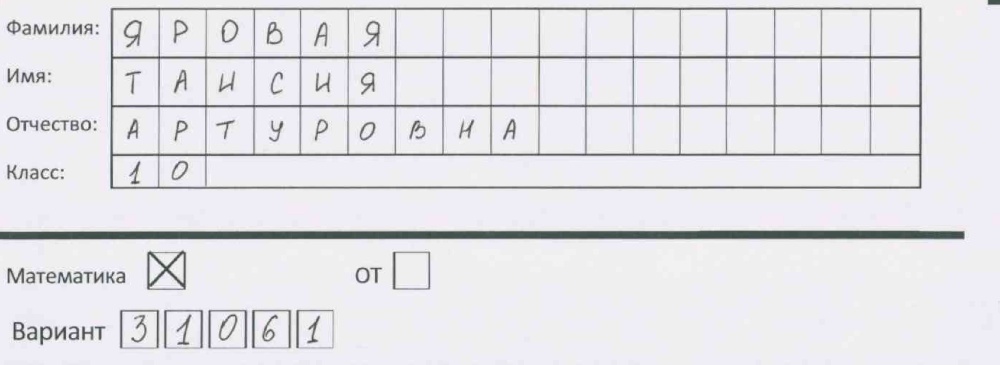 Фамилия: ЯРОВАЯ
Имя: ТАИСИЯ
Отчество: АРТУРОВНА
Класс: 10
Математика ОТ
Вариант 31061